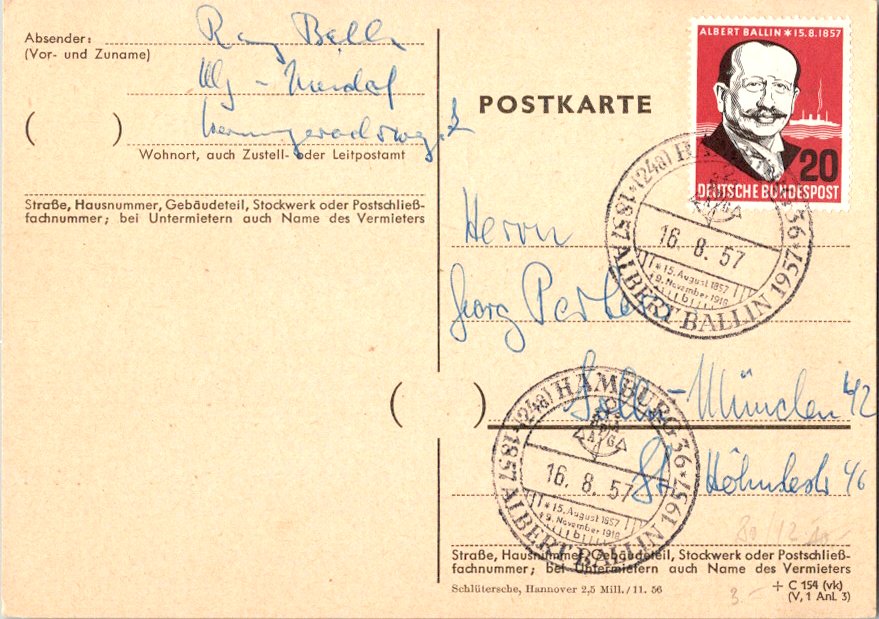 Absender:
(Vor- und Zuname)
( )
Wohnort, auch Zustell- oder Leitpostamt
Straße, Hausnummer, Gebäudeteil, Stockwerk oder Postschließ-
fachnummer; bei Untermietern auch Name des Vermieters
POSTKARTE
ALBERT BALLIN * 15.8.1857
20
DEUTSCHE BUNDESPOST
(24a) HAMBURG 36
16.8.57
* 15. August 1857
+ 9. November 1918
b
* 1857 ALBERT BALLIN 1957 *
Herrn
Georg
Solln-München 42
46
( )
(24a) HAMBURG 36
HAPAG
16.8.57
* 15. August 1857
+ 9. November 1918
b
* 1857 ALBERT BALLIN 1957 *
Straße, Hausnummer, Gebäudeteil, Stockwerk oder Postschließ-
fachnummer; bei Untermietern auch Name des Vermieters
Schlütersche, Hannover 2,5 Mill./11. 56
+ C 154 (vk)
(V, 1 Anl. 3)
3.-